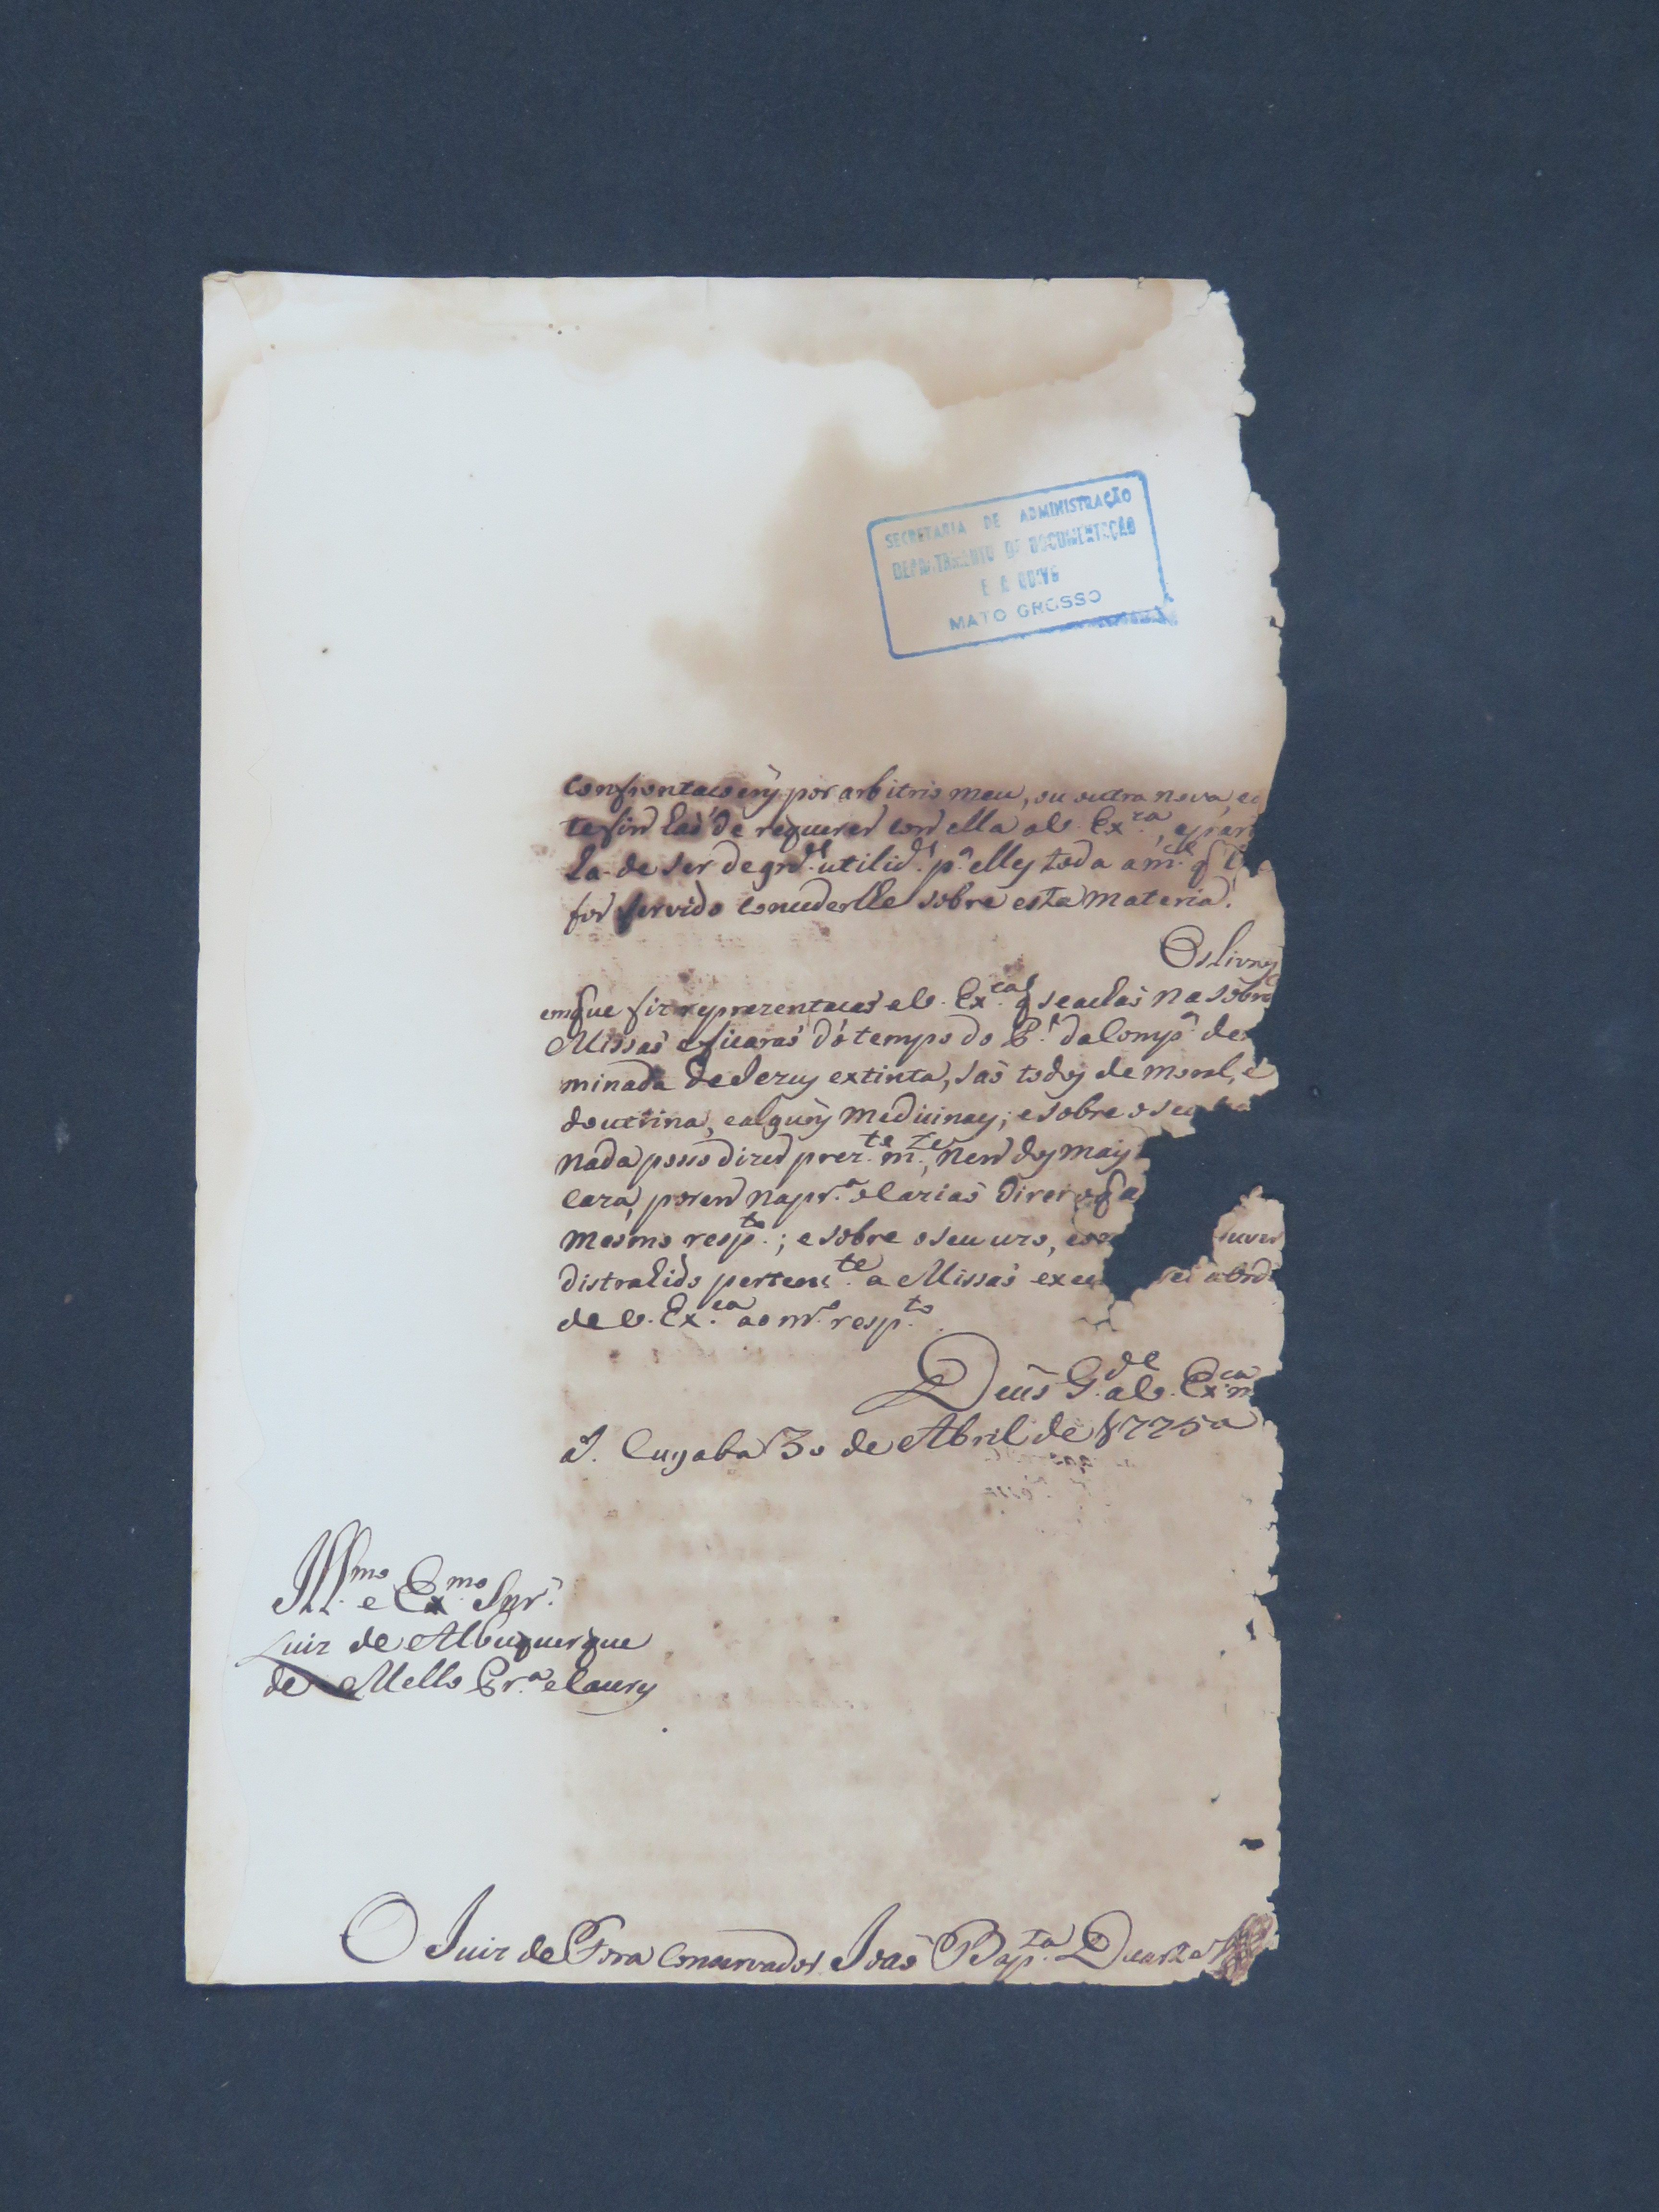 SECRETARIA DE ADMINISTRAÇÃO
DEPARTAMENTO DE DOCUMENTAÇÃO
E ARQUIVO
MATO GROSSO
confrontacoens por arbitrio meu, ou outra nova, e
te fim haõ de requerer com ella a V. Ex.ca, e
ha de ser de grd.e utilid.e p.a elles toda a m.ce q
for servido concederlhe sobre esta materia.
Os livros
em que fiz reprezentacaõ a V. Ex.ca q se achaõ na
Missaõ e ficaraõ do tempo do P.e da Comp.a de
minada de Jezus extinta, saõ todos de moral, e
doutrina, e alguns Medicinaes; e sobre o seu
nada posso dizer prez.te m.te, nem dos mais
lara, porem na pr.a olariaõ direi o q a
mesmo resp.to; e sobre o seu uzo,
distrahido pertenc.te a Missaõ
de V. Ex.ca ao m.o resp.to.
Deus G.de a V. Ex.ca m
a.s Cuyaba 30 de Abril de 1775 a
Ill.mo e Ex.mo Snr.
Luiz de Albuquerque
de Mello Pr.a e Caceres
O Juiz de Fora Conservador Joaõ Bap.ta Duarte